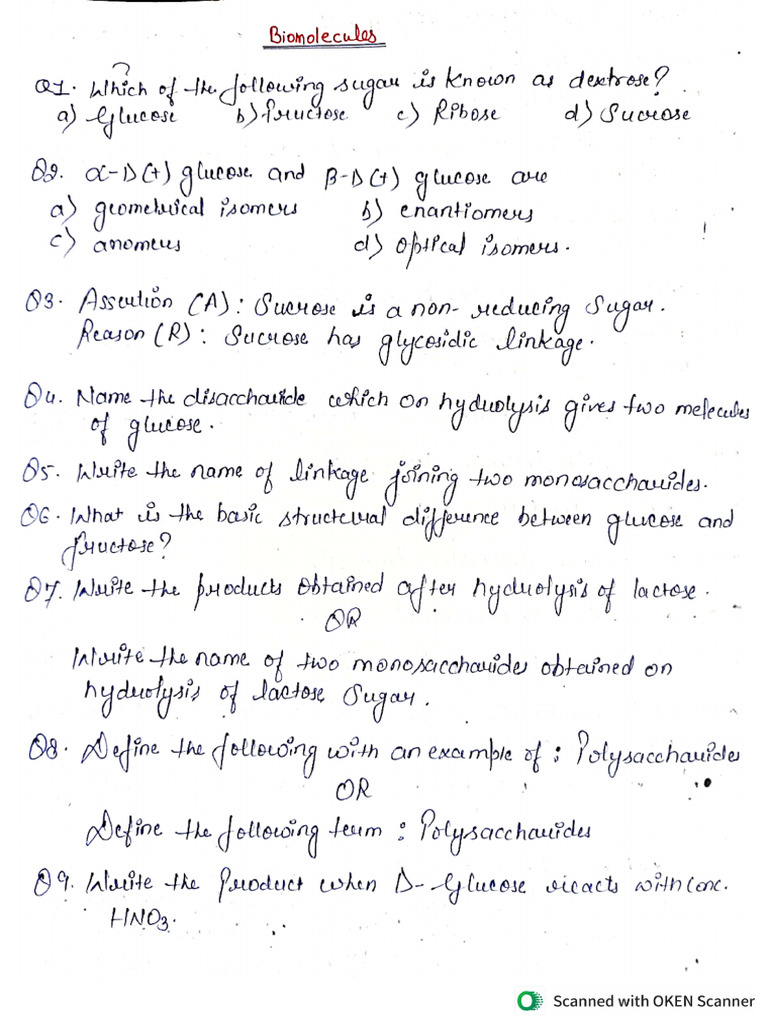 Biomolecules
Q1. Which of the following sugar is known as dextrose?
a) Glucose b) fructose c) Ribose d) Sucrose
Q2. α-D(+) glucose and β-D(+) glucose are
a) geometrical isomers b) enantiomers
c) anomers d) optical isomers.
Q3. Assertion (A): Sucrose is a non-reducing sugar.
Reason (R): Sucrose has glycosidic linkage.
Q4. Name the disaccharide which on hydrolysis gives two melecules
of glucose.
Q5. Write the name of linkage joining two monosaccharides.
Q6. What is the basic structural difference between glucose and
fructose?
Q7. Write the products obtained after hydrolysis of lactose.
OR
Write the name of two monosaccharides obtained on
hydrolysis of lactose sugar.
Q8. Define the following with an example of : Polysaccharides
OR
Define the following term : Polysaccharides
Q9. Write the Product when D-Glucose reacts with conc.
HNO3.
Scanned with OKEN Scanner